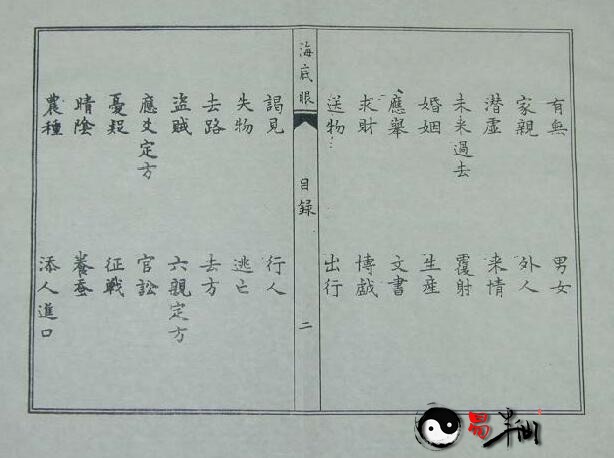 有無 男女
家親 外人
潜虚 来情
未来過去 覆射
婚姻 生産
應舉 文書
求財 博戯
送物 出行
海底眼 目録 二
謁見 行人
失物 逃亡
去路 去方
盜賊 六親定方
應爻定方 官訟
憂疑 征戰
晴陰 養蚕
農種 添人進口
易半仙